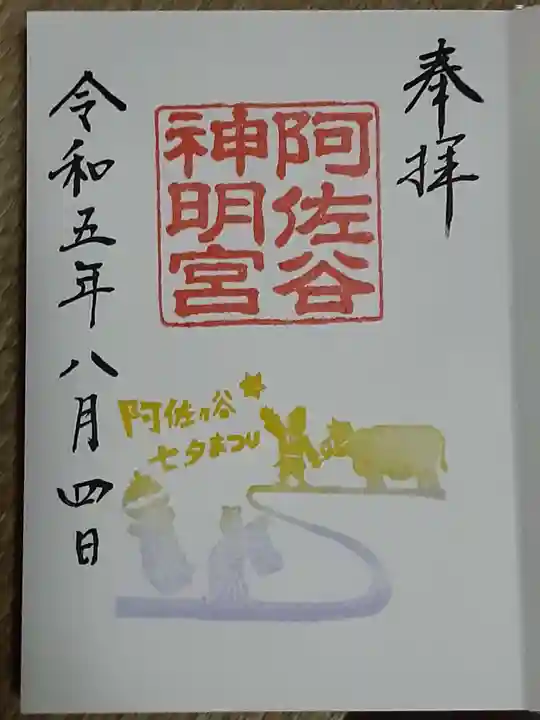 奉拝
阿佐谷
神明宮
阿佐ヶ谷
七夕まつり
令和五年八月四日